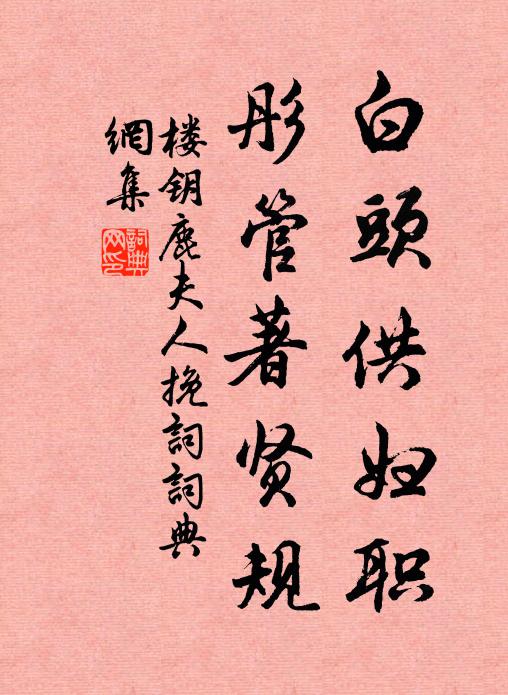 白頭供妇职
彤管著贤规
楼钥鹿夫人挽詞詞典
網集
詞典
网印